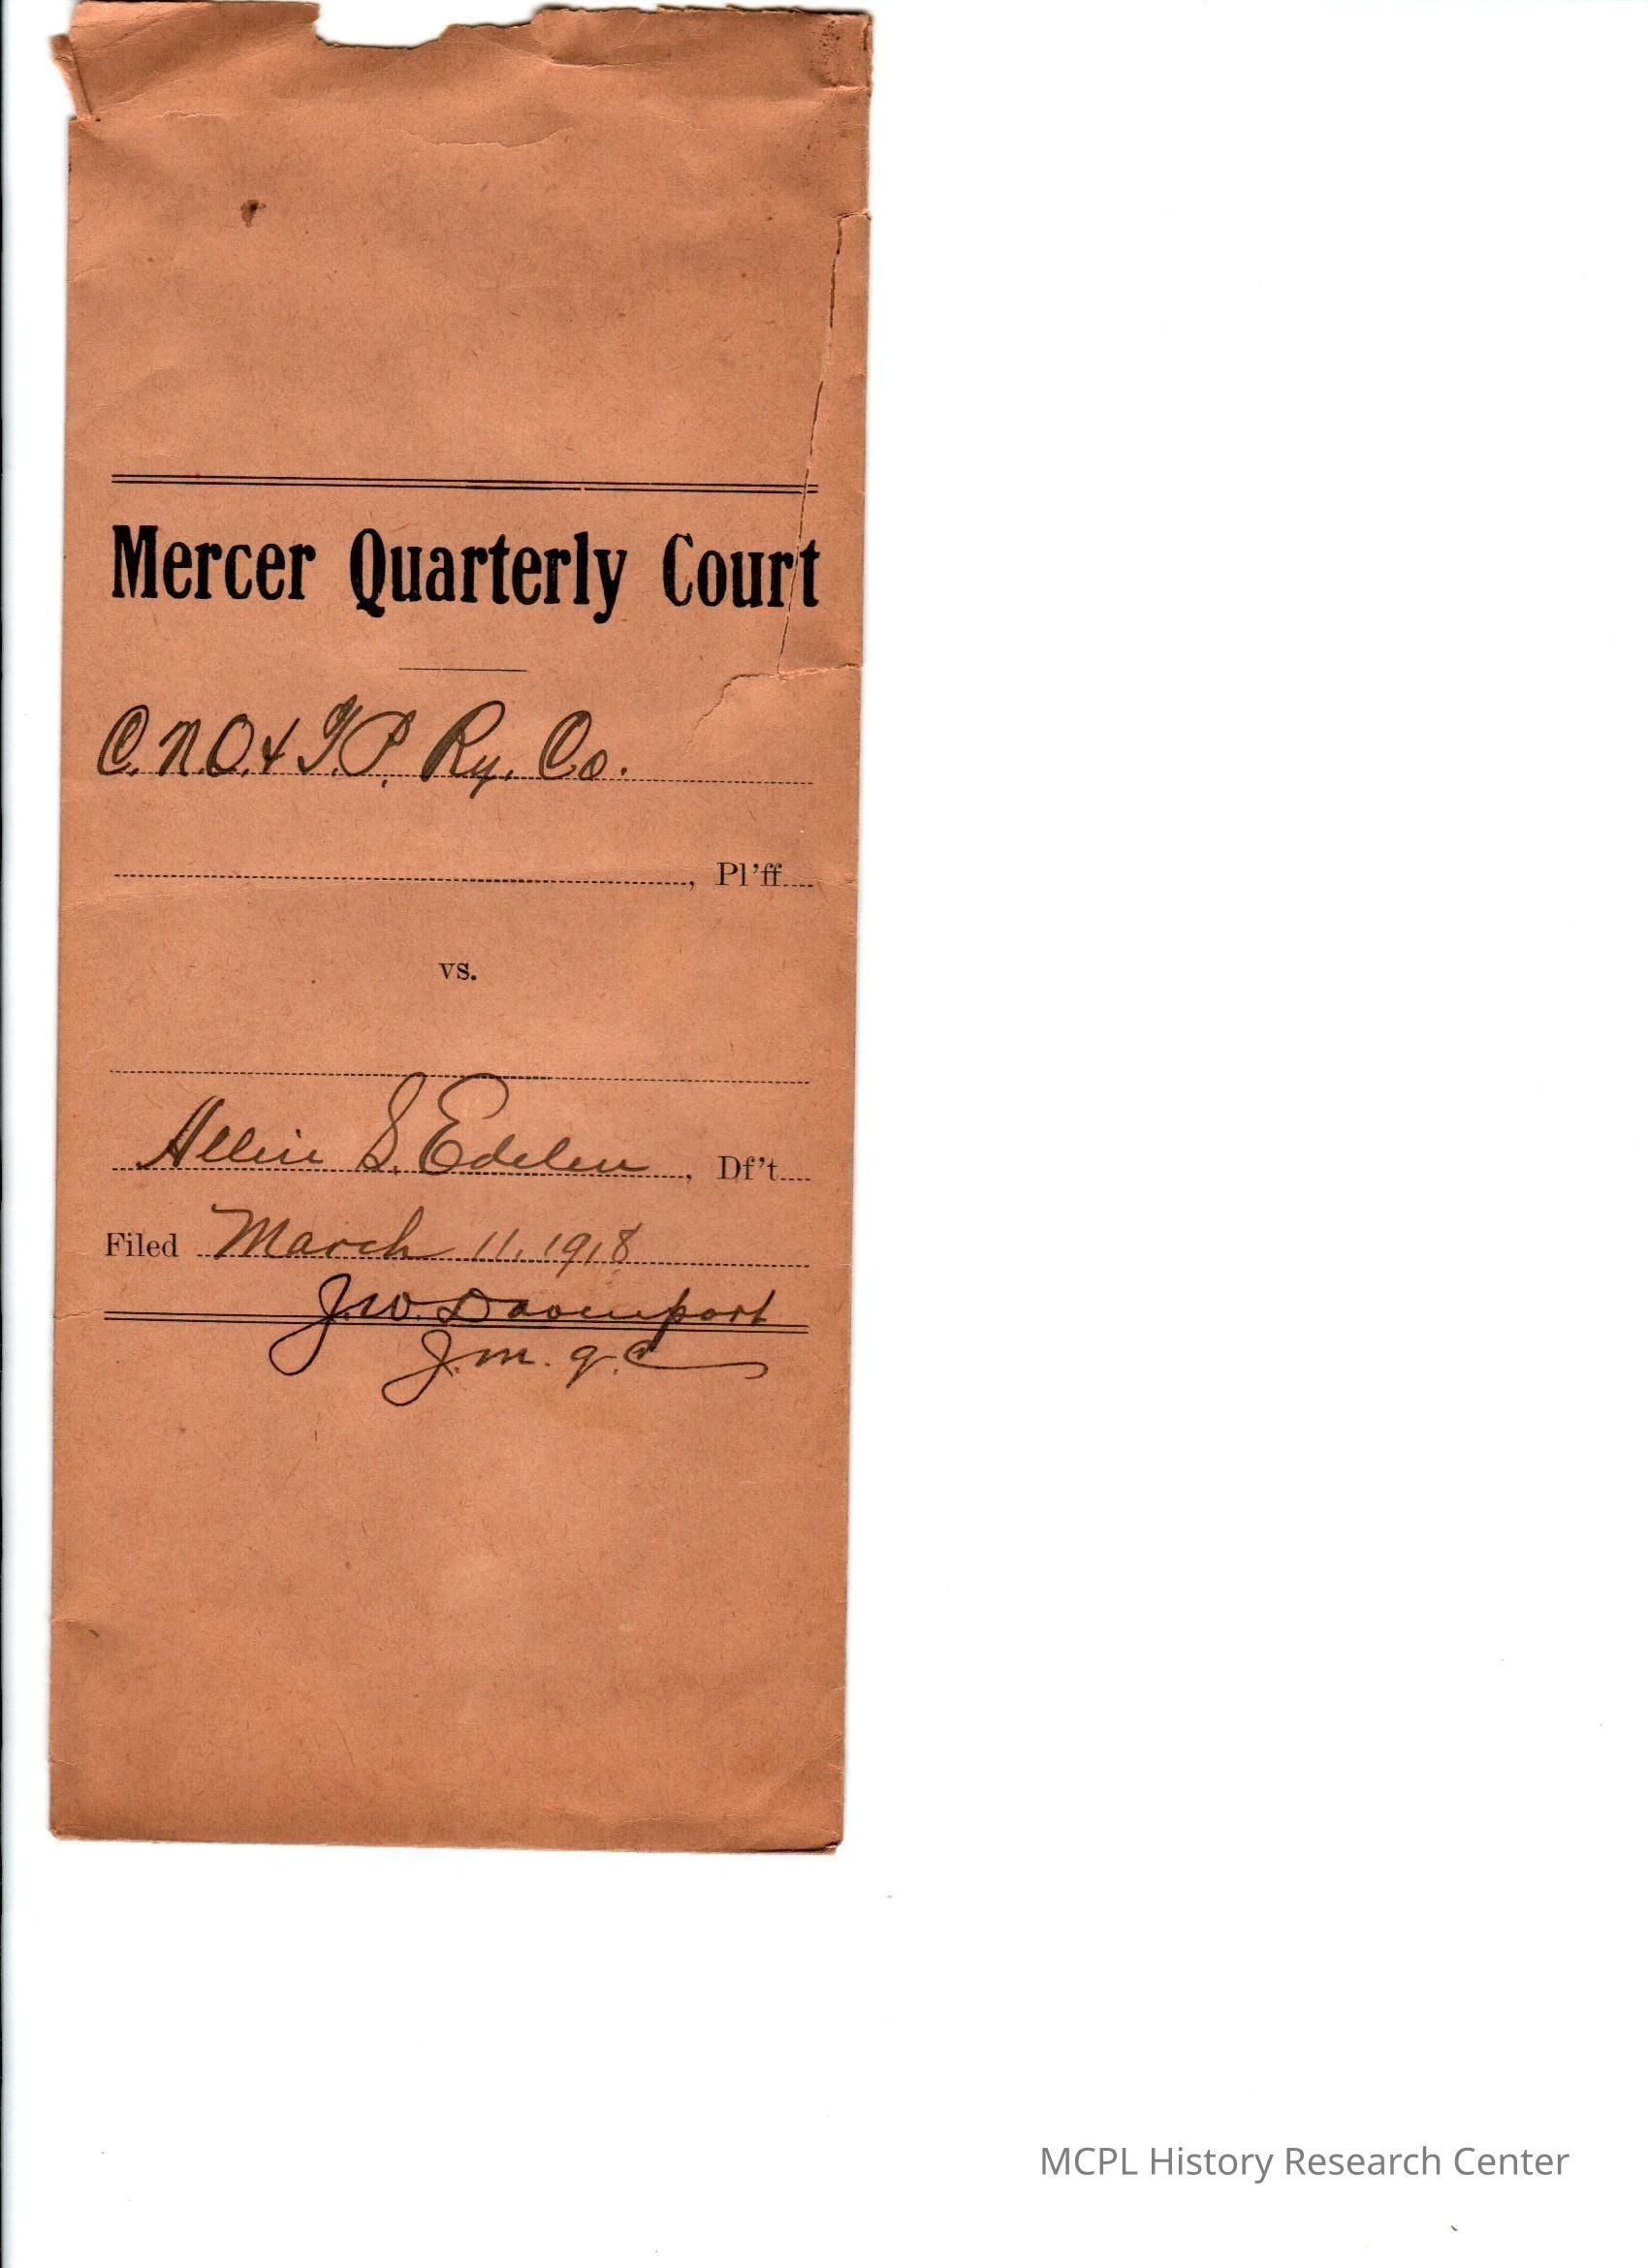 Mercer Quarterly Court
C. N. O. & T. P. Ry. Co.
, Pl'ff
vs.
S. Edelen, Df't
Filed March 11, 1918
J. W. Davenport
J. M. Q. C
MCPL History Research Center